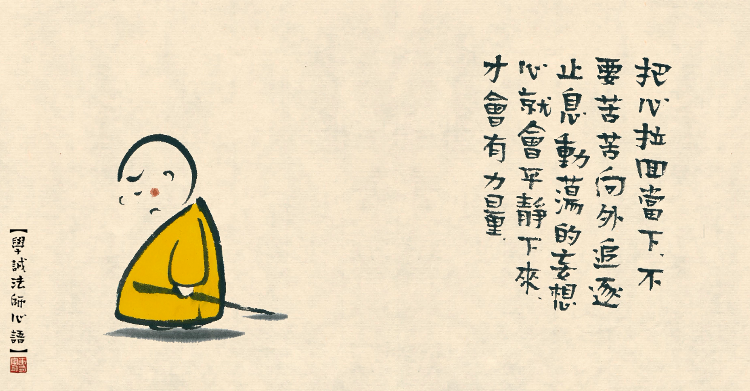 把心拉回當下，不
要苦苦向外追逐
止息動蕩的妄想
心就會平靜下來，
才會有力量。
【學誠法師心語】